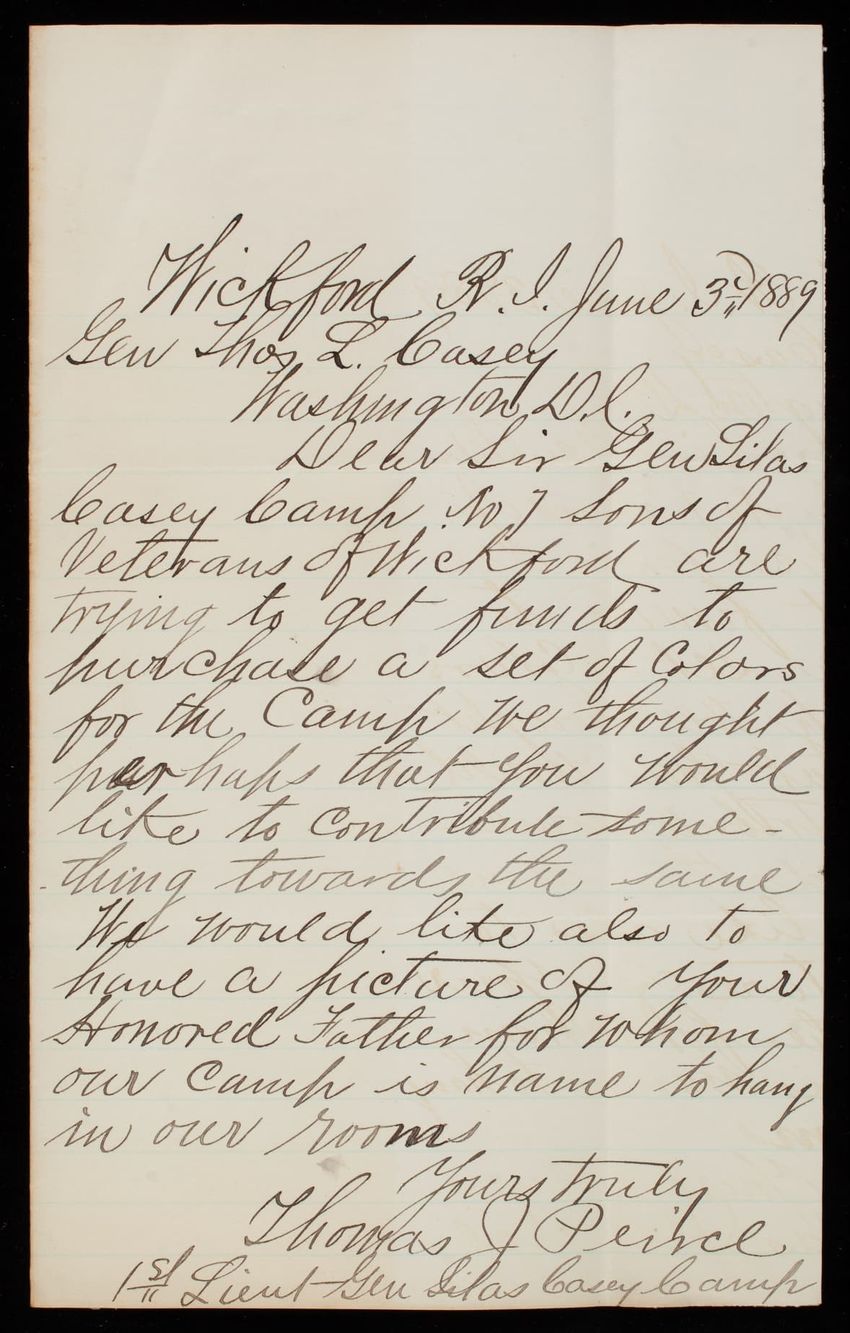 Wickford R. I. June 3d 1889
Gen Thos L. Casey
Washington D.C.
Dear Sir Gen Silas
Casey Camp No 7 Sons of
Veterans of Wickford are
trying to get funds to
purchase a set of Colors
for the Camp we thought
perhaps that you would
like to contribute some-
thing towards the same
We would like also to
have a picture of your
Honored Father for whom
our Camp is name to hang
in our rooms
Yours truly
Thomas J Peirce
1st Lieut Gen Silas Casey Camp